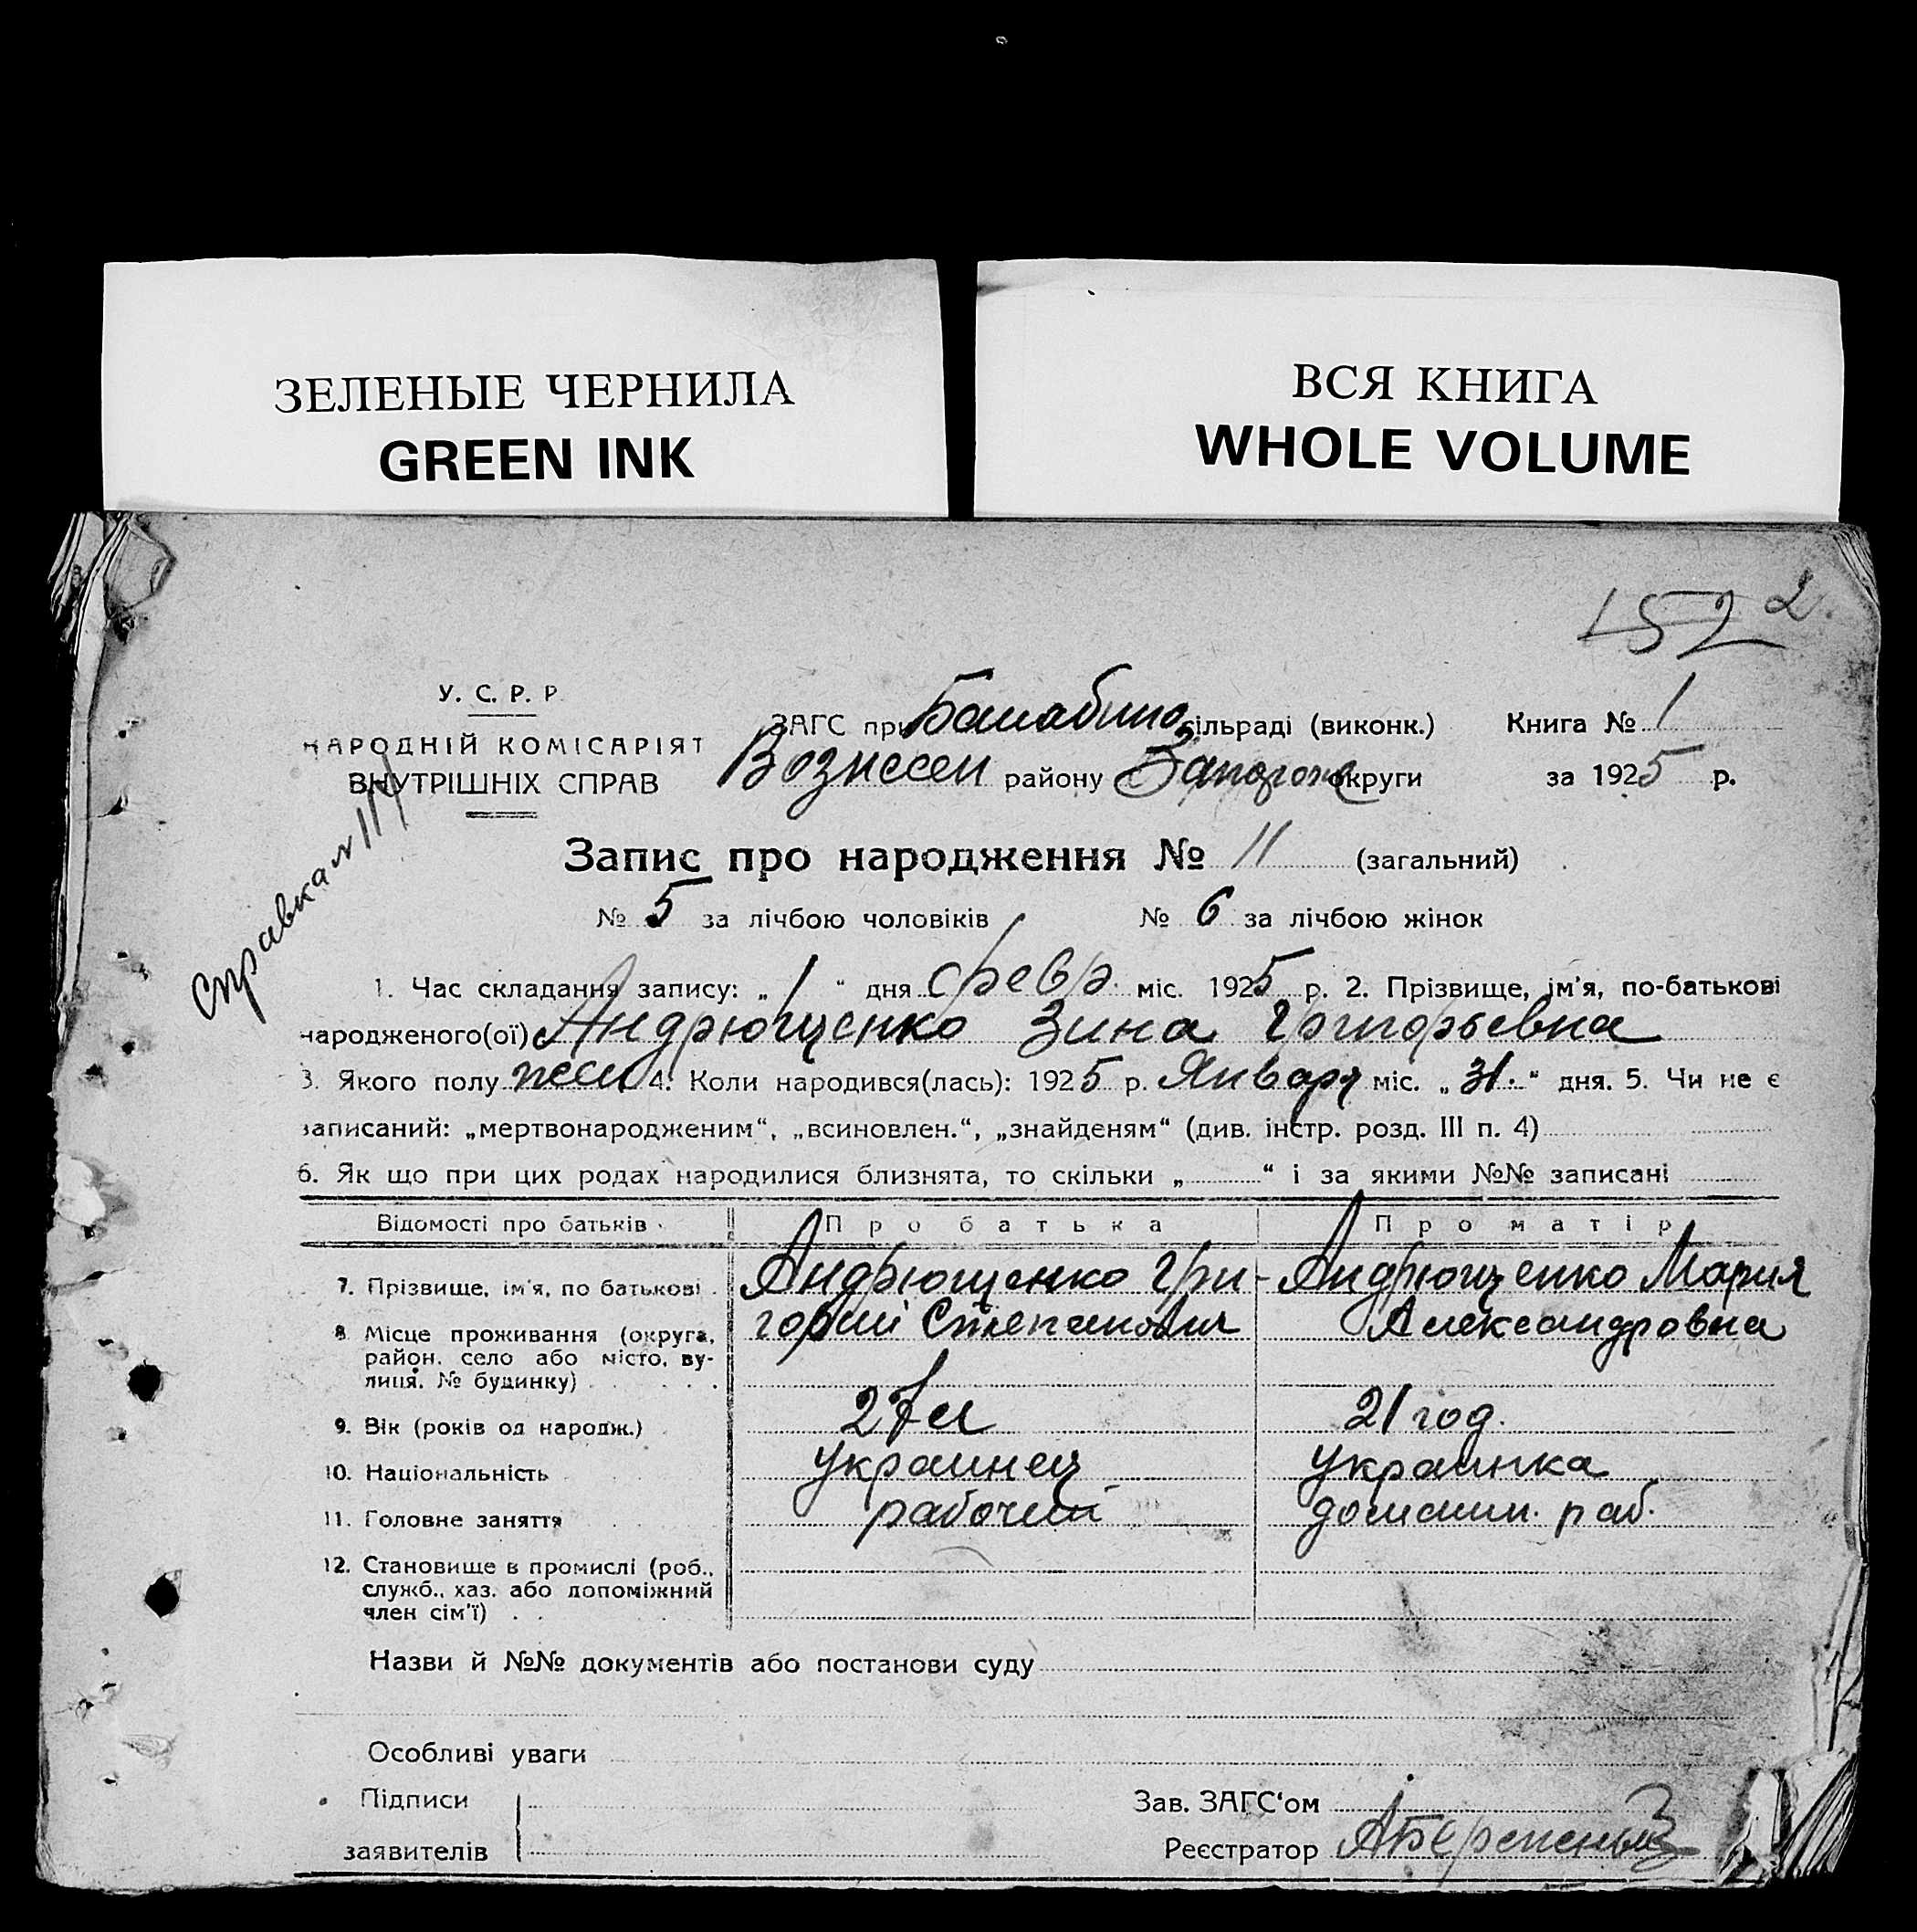 ЗЕЛЕНЫЕ ЧЕРНИЛА
GREEN INK
ВСЯ КНИГА
WHOLE VOLUME
152 2.
У. С. Р. Р.
НАРОДНІЙ КОМІСАРІЯТ
ВНУТРІШНІХ СПРАВ
ЗАГС при Балабино сільраді (виконк.) Книга № 1
Вознесен району Запорож округи за 1925 р.
Справка № 111
Запис про народження № 11 (загальний)
№ 5 за лічбою чоловіків № 6 за лічбою жінок
1. Час складання запису: „ 1 “ дня февр. міс. 1925 р. 2. Прізвище, ім'я, по-батькові
народженого(ої) Андрющенко Зина Григорьевна
3. Якого полу жен 4. Коли народився(лась): 1925 р. Января міс. „ 31. “ дня. 5. Чи не є
записаний: „мертвонародженим“, „всиновлен.“, „знайденям“ (див. інстр. розд. III п. 4)
6. Як що при цих родах народилися близнята, то скільки „ “ і за якими №№ записані
Відомості про батьків Про батька Про матір
7. Прізвище, ім'я, по батькові Андрющенко Гри- Андрющенко Мария
горий Степанович Александровна
8. Місце проживання (округа,
район, село або місто, ву-
лиця, № будинку)
9. Вік (років од народж.) 27 л 21 год.
10. Національність украинец украинка
11. Головне заняття рабочий домашн. раб.
12. Становище в промислі (роб.,
служб., хаз. або допоміжний
член сім'ї)
Назви й №№ документів або постанови суду
Особливі уваги
Підписи Зав. ЗАГС‘ом
заявителів Реєстратор